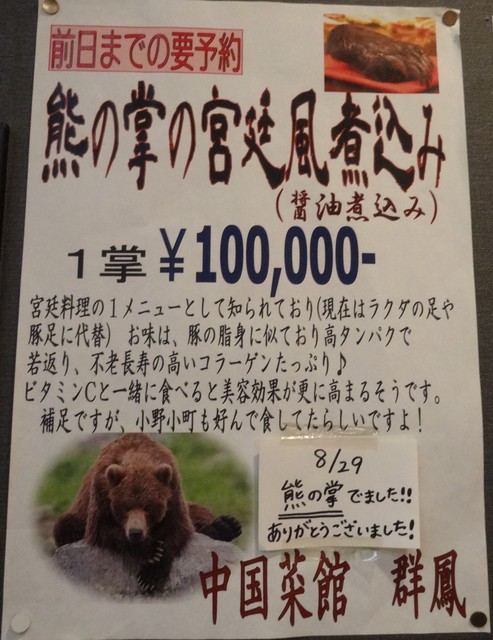 前日までの要予約
熊の掌の宮廷風煮込み
(醤油煮込み)
1掌 ¥100,000-
宮廷料理の1メニューとして知られており(現在はラクダの足や
豚足に代替) お味は、豚の脂身に似ており高タンパクで
若返り、不老長寿の高いコラーゲンたっぷり♪
ビタミンCと一緒に食べると美容効果が更に高まるそうです。
補足ですが、小野小町も好んで食してたらしいですよ!
8/29
熊の掌でました!!
ありがとうございました!
中国菜館 群鳳